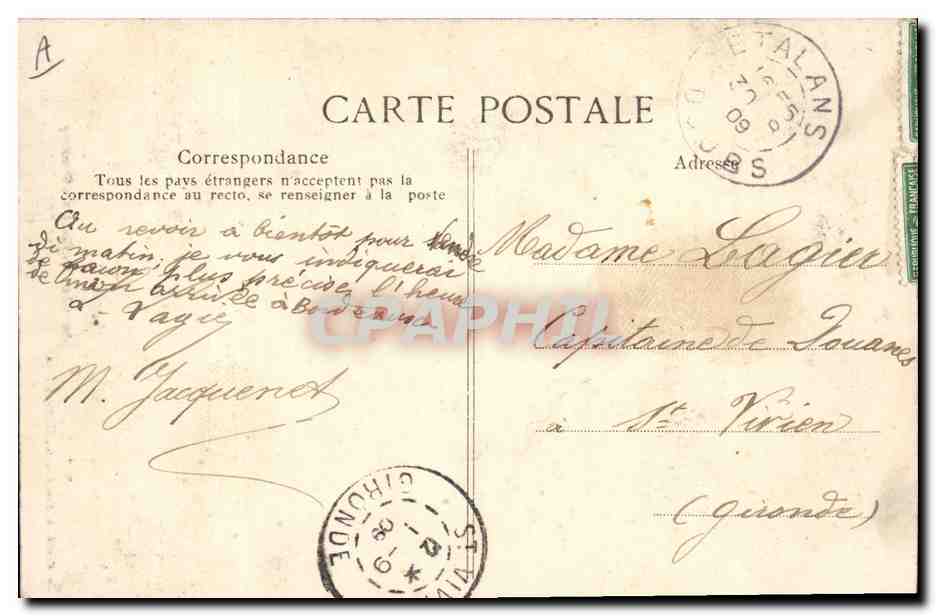 A
CARTE POSTALE
Correspondance
Tous les pays étrangers n'acceptent pas la
correspondance au recto, se renseigner à la poste
Au revoir à bientôt pour
di matin, je vous indiquerai
de plus précise, l'heure
de mon arrivée à Bordeaux
M. Jacquenet
Adresse
Madame Lagier
Capitaine de Douanes
à St Vivien
(Gironde)
ETALANS
DOUBS
09
ST. VIV
GIRONDE
09
CPAPHIL
FRANÇAISE